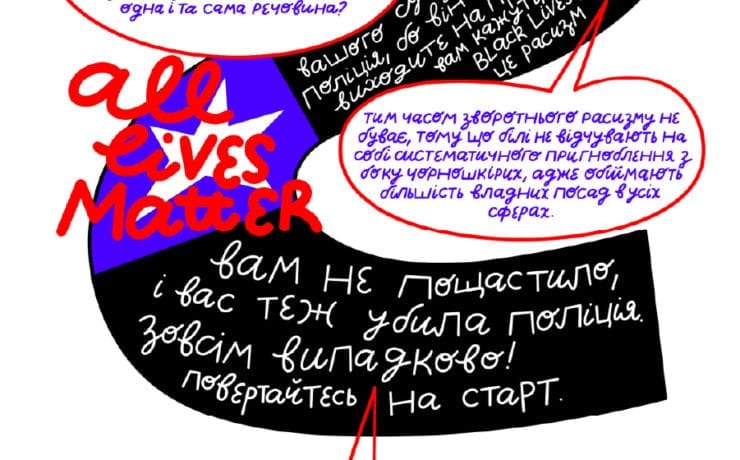 одна і та сама речовина?
вашого су
поліція, бо він
виходите на п
вам кажуть
Black Lives
це расизм
All
Lives
Matter
тим часом зворотнього расизму не
буває, тому що білі не відчувають на
собі систематичного пригноблення з
боку чорношкірих, адже обіймають
більшість владних посад в усіх
сферах.
вам не пощастило,
і вас теж убила поліція.
зовсім випадково!
повертайтесь на старт.